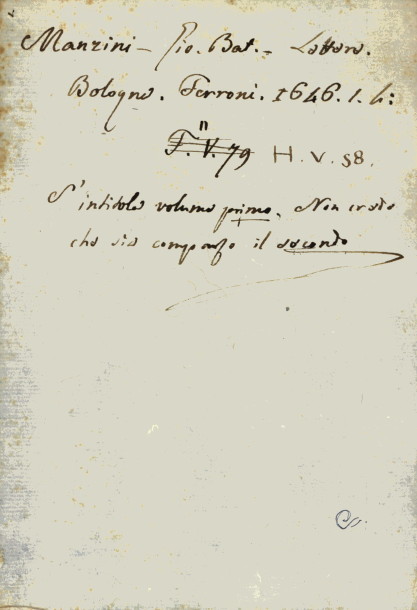 Manzini - Gio. Bat. - Lettere.
Bologna. Ferroni. 1646. 1. h:
F. V. 79 H. V. 58.
S'intitola volume primo. Non credo
che sia comparso il secondo